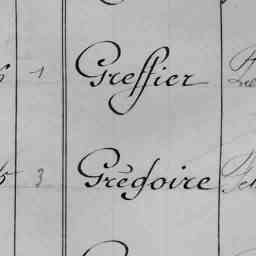 1 Greffier
3 Grégoire